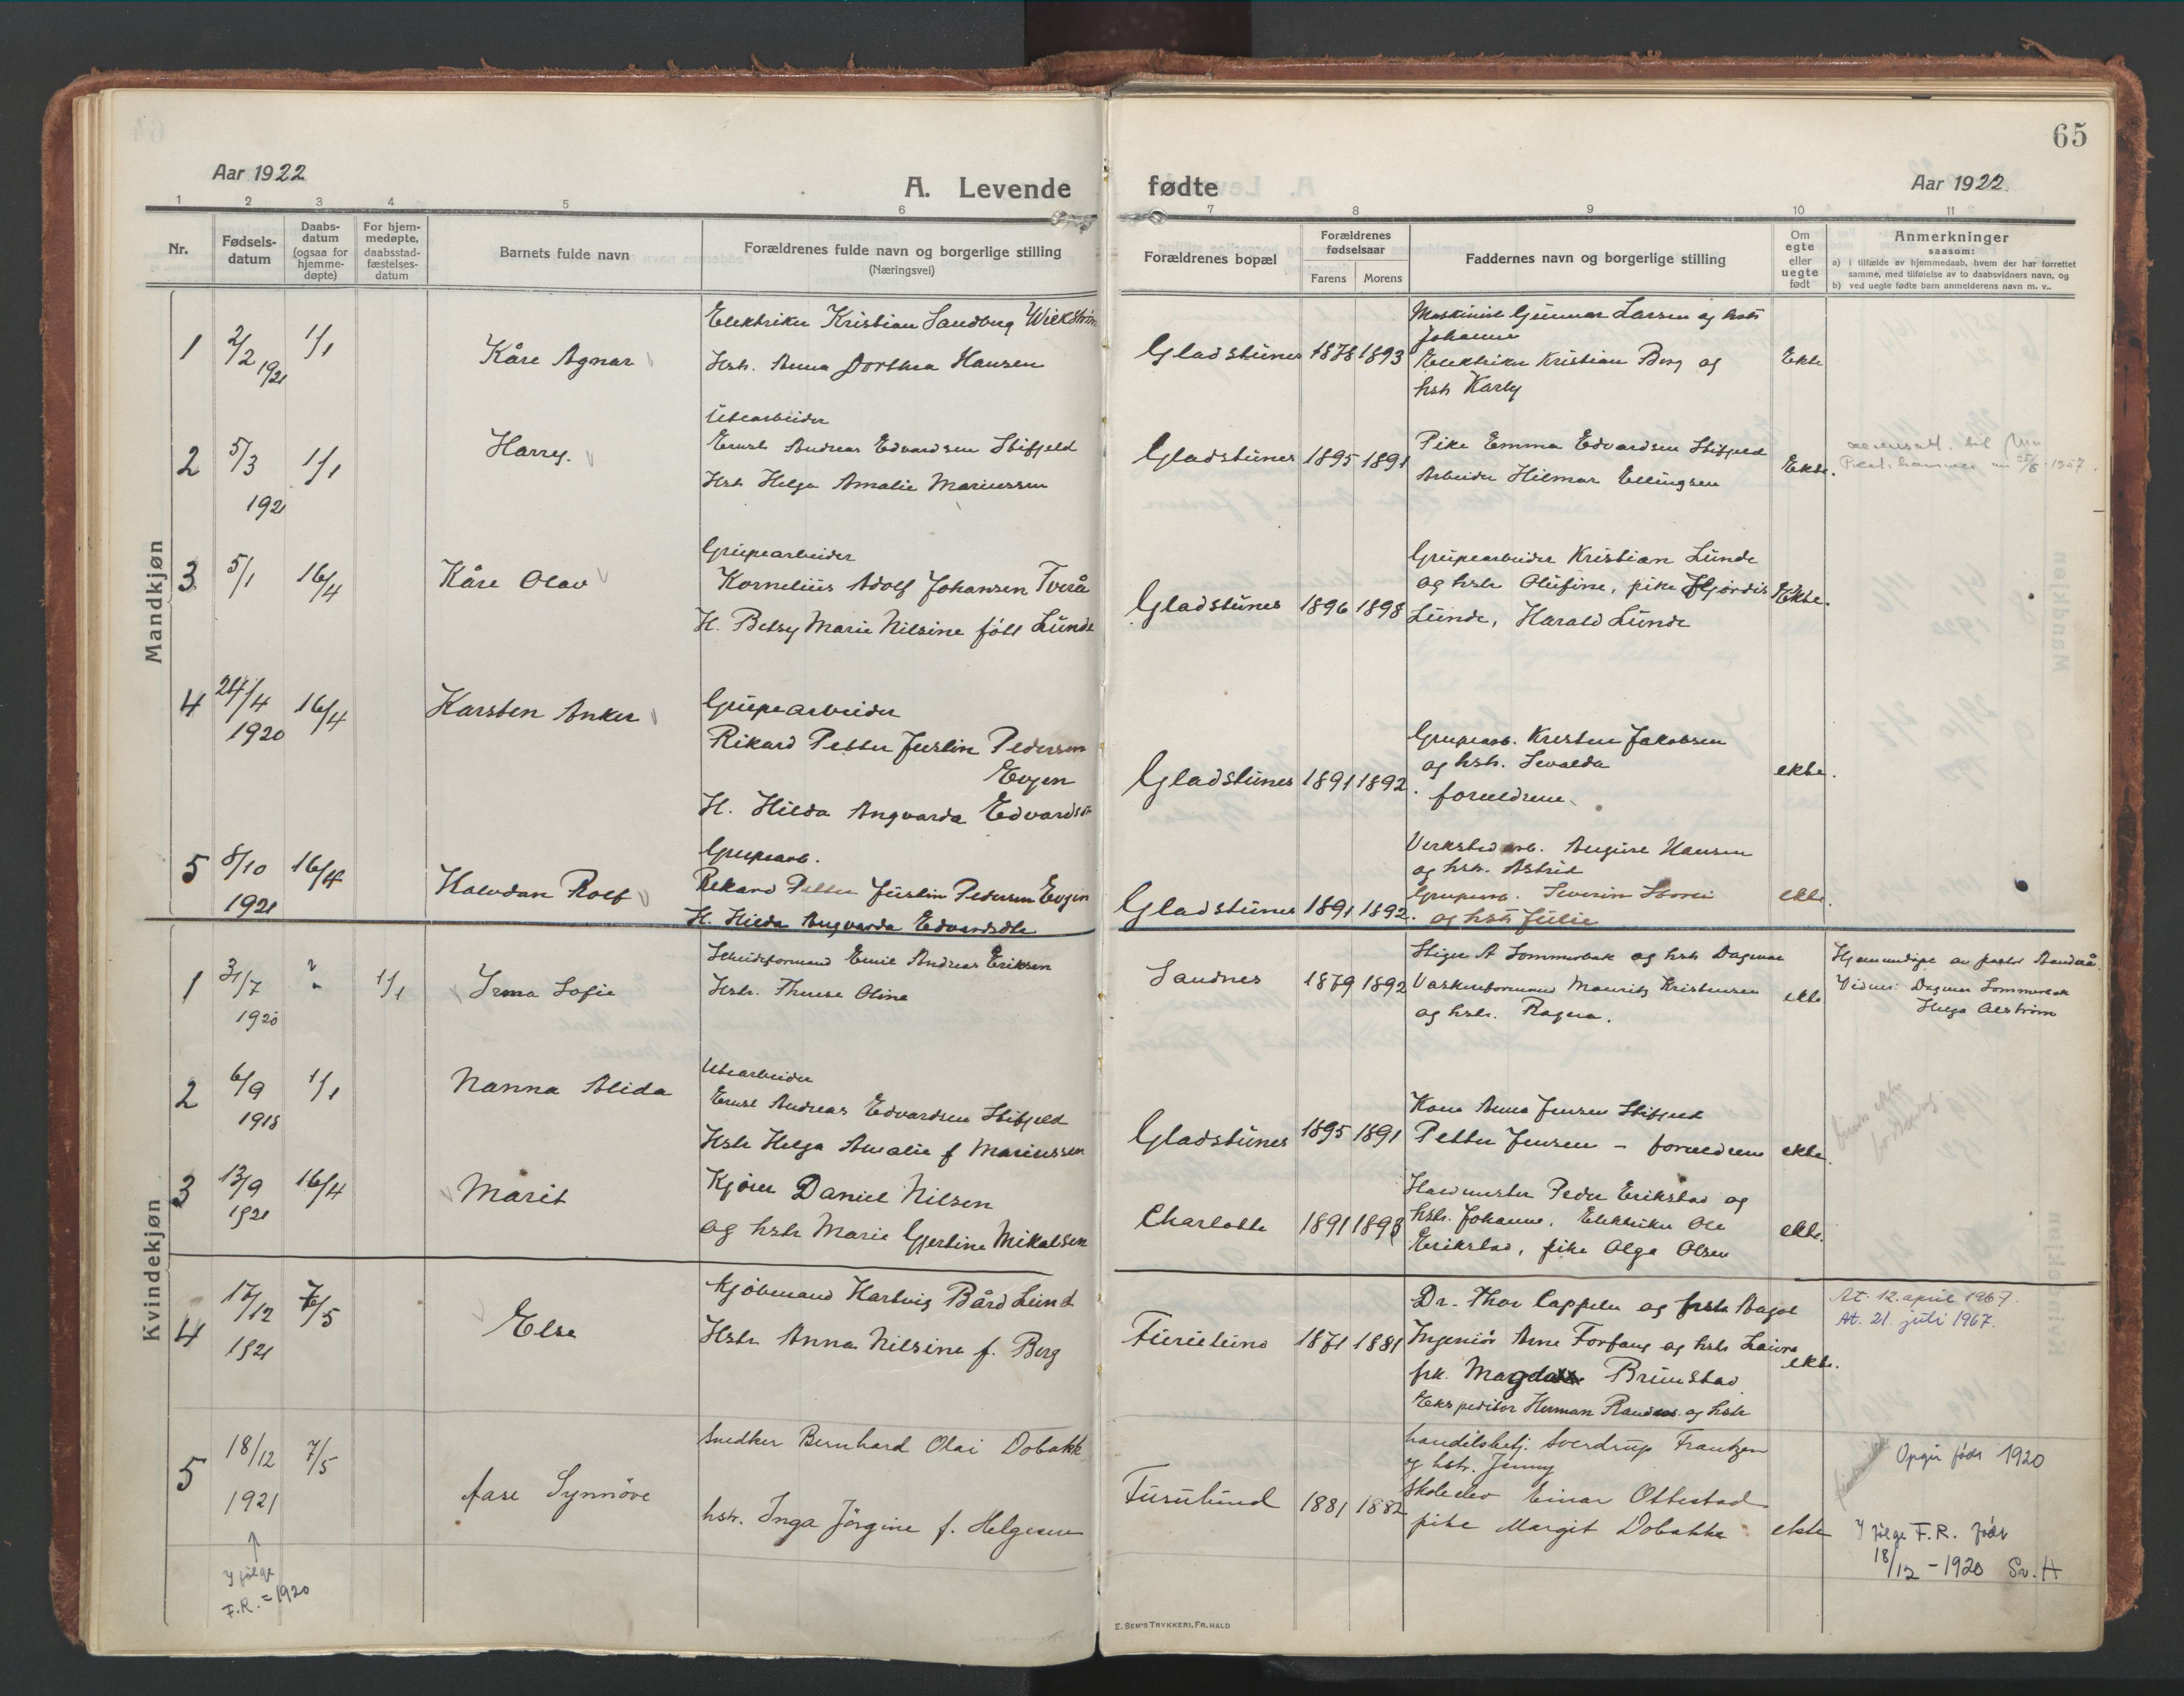 65
Aar 1922
A. Levende
fødte
Aar 1922.
1 2 3 4 5 6 7 8 9 10 11
Nr.
Fødsels-
datum
Daabs-
datum
(ogsaa for
hjemme-
døpte)
For hjem-
medøpte,
daabsstad-
fæstelses-
datum
Barnets fulde navn
Forældrenes fulde navn og borgerlige stilling
(Næringsvei)
Forældrenes bopæl
Forældrenes
fødselsaar
Farens Morens
Faddernes navn og borgerlige stilling
Om
egte
eller
uegte
født
Anmerkninger
saasom:
a) i tilfælde av hjemmedaab, hvem der har forrettet
samme, med tilføielse av to daabsvidners navn, og
b) ved uegte fødte barn anmelderens navn m. v..
Mandkjøn
1 2/2 1921 1/1 Kåre Agnar
Elektriker Kristian Sandberg Wickstrøm
Hstr. Anna Dorthea Hansen
Gladstunes 1878 1893
Maskinist Gunnar Larsen og hstr
Johanne
Elektriker Kristian Berg og
hstr Karly
Ekte
2 5/3 192 1/1 Harry.
Utearbeider
Ernst Andreas Edvardsen Stifjeld
Hstr Helga Amalie Mariussen
Gladstunes 1895 1891
Pike Emma Edvardsen Stifjeld
Arbeider Hilmar Ellingsen
Ekte.
3 5/1 16/4 Kåre Olav
Grupearbeider
Kornelius Adolf Johansen Tverå
H. Betsy Marie Nilsine født Lunde
Gladstunes 1896 1898
Grupearbeider Kristian Lunde
og hstr Olufine, pike Hjørdis
Lunde, Harald Lunde
Ekte.
4 24/4 1920 16/4 Karsten Anker
Grupearbeider
Rikard Petter Justin Pedersen
Evjen
H. Hilda Angvarda Edvardsdtr
Gladstunes 1891 1892.
Grupearb. Kresten Jakobsen
og hstr. Sevalda
forældrene.
ekte.
5 8/10 1921 16/4 Halvdan Rolf
Grupearb.
Rekard Petter Justin Pedersen Evjen
H. Hilda Angvarda Edvardsdtr
Gladstunes 1891 1892.
Verkstedarb. August Hansen
og hstr. Astrid
Gruparb. Severin Storli
og hstr Julie
ekte.
Kvindekjøn
1 31/7 1920 1/1 Irma Sofie
Skeideformand Emil Andreas Eriksen
Hstr. Therese Oline
Sandnes 1879 1892
Stiger A Sommerbak og hstr Dagmar
Vaskeriformand Mauritz Kristensen
og hstr. Ragna.
ekte
Hjemmedøpt av pastor Sandnå.
Vidner: Dagmar Sommerbak
Helga Alstrøm
2 6/9 1918 1/1 Nanna Alida
Utearbeider
Ernst Andreas Edvardsen Stifjeld
Hstr Helga Amalie f Mariussen
Gladstunes 1895 1891
Kone Anna Jensen Stifjeld
Petter Jensen – forældrene
ekte.
3 13/9 1921 16/4 Marit
Kjører Daniel Nilsen
og hstr Marie Gjertine Mikalsen
Charlotte 1891 1898
Havnmester Peder Erikstad og
hstr. Johanne. Elektriker Ole
Erikstad, pike Olga Olsen
ekte.
4 17/12 1921 7/5 Else
Kjøbmand Hartvig Bård Lund
Hstr Anna Nilsine f. Berg
Furulund 1871 1881
Dr. Thor Cappelen og frstr Aagot
Ingeniør Arne Forfang og hstr Laura
frk. Magda Brunstad
Ekspeditør Herman Randers og hstr
ekte.
At. 12. april 1967.
At. 21. juli 1967.
5 18/12 1921 7/5 Aase Synnöve
Snedker Bernhard Olai Dobakk
hstr. Inga Jörgine f. Helgesen
Furulund 1881 1882
handelsbetj. Sverdrup Frantzen
og hstr. Jenny
Skoleelev Einar Ottestad
pike Margit Dobakk
ekte
Opgir født 1920
I følge F.R. født
18/12 – 1920 Sv. H
I følge
F.R. = 1920
E. SEM'S TRYKKERI, FR.HALD